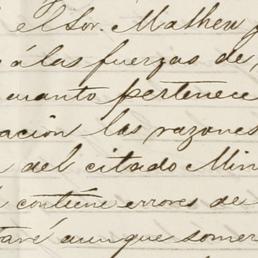 el Sor. Matheu
á las fuerzas de
cuanto pertenece
ación las razones
del citado Min
contiene errores de
taré aunque somer